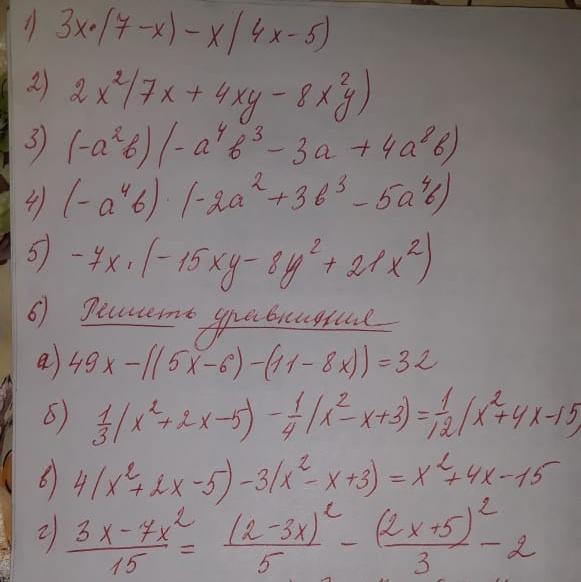 1) 3x·(7-x) - x(4x-5)
2) 2x²(7x + 4xy - 8x²y)
3) (-a²b)(-a⁴b³ - 3a + 4a⁸b)
4) (-a⁴b)·(-2a² + 3b³ - 5a⁴b)
5) -7x·(-15xy - 8y² + 21x²)
6) Решить уравнения
а) 49x - ((5x-6) - (11-8x)) = 32
б) 1/3(x²+2x-5) - 1/4(x²-x+3) = 1/12(x²+4x-15)
в) 4(x²+2x-5) - 3(x²-x+3) = x²+4x-15
г) (3x-7x²)/15 = (2-3x)²/5 - (2x+5)²/3 - 2